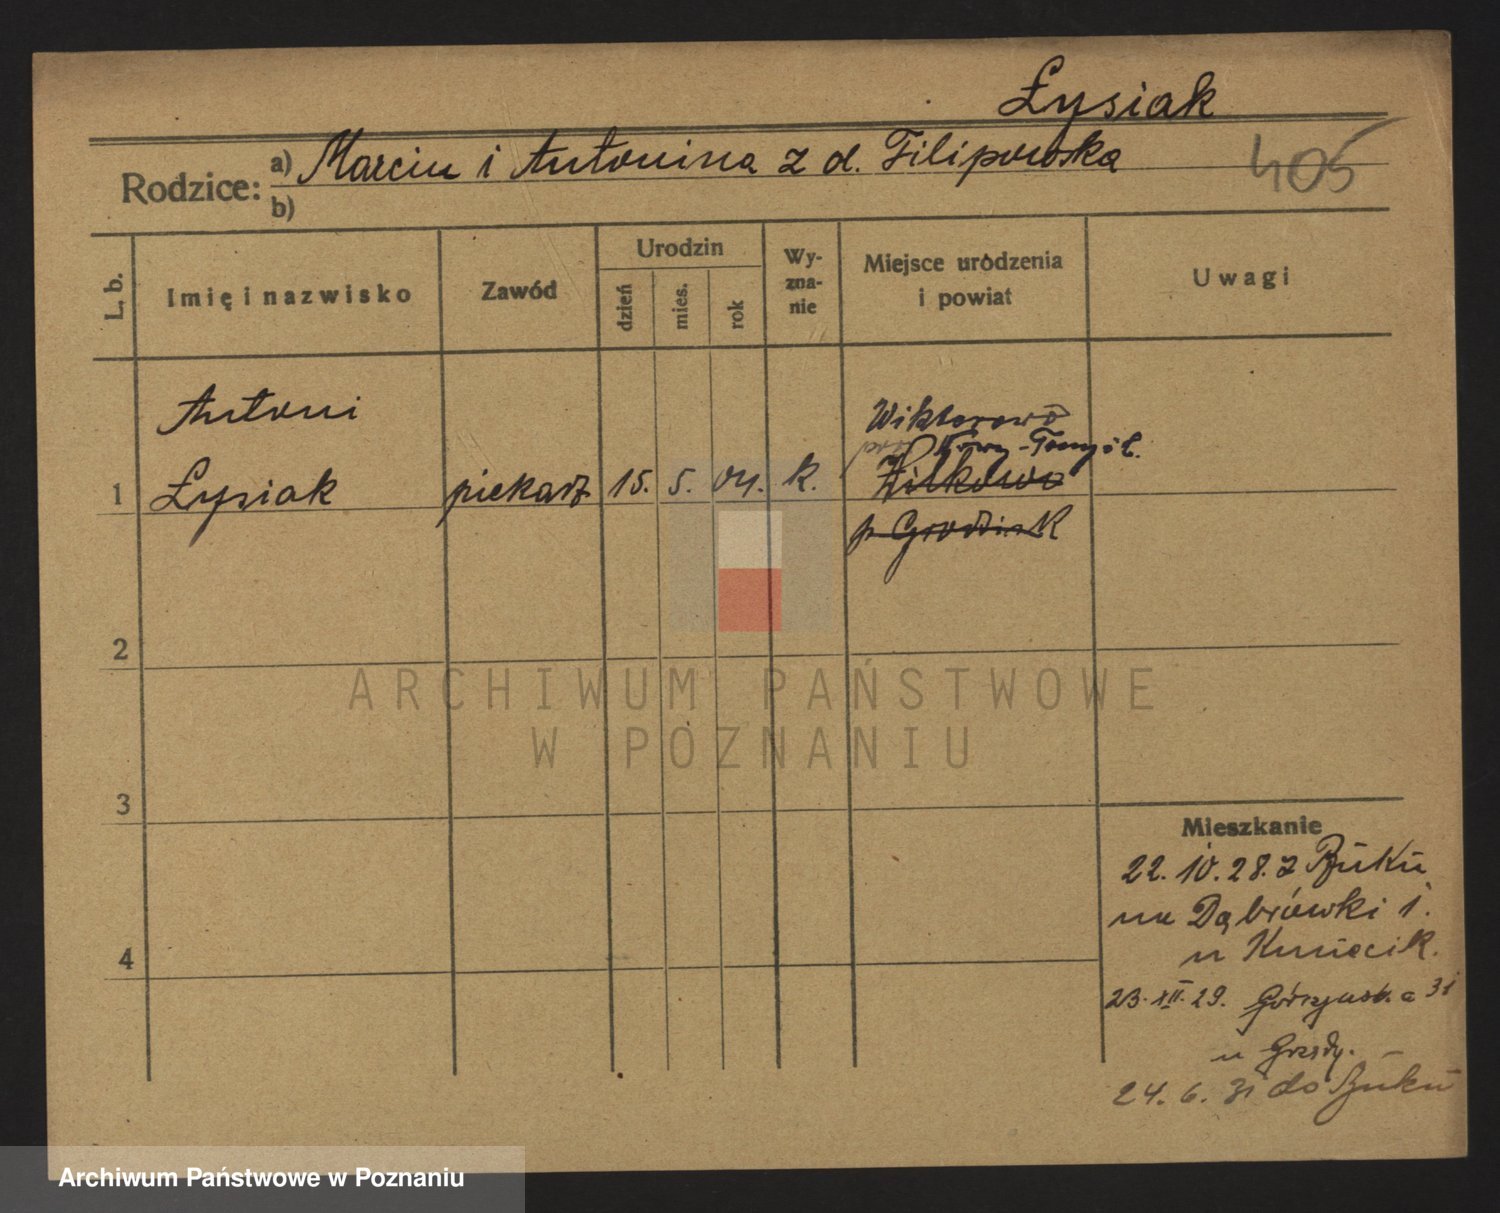 Łysiak
Rodzice: a) Marcin i Antonina z d. Filipowska
405
b)
L. b.
Imię i nazwisko
Zawód
Urodzin
dzień
mies.
rok
Wy-
zna-
nie
Miejsce urodzenia
i powiat
Uwagi
Antoni
Wiktorowo
Nowy-Tomyśl.
1 Łysiak piekarz 15. 5. 04. k. Wilkowo
p Grodzisk
2
ARCHIWUM PAŃSTWOWE
W POZNANIU
3
Mieszkanie
22. 10. 28. z Buku
na Dąbrówki 1.
u Kmiecik.
4
23. XII. 29. 31
u
24. 6. 31 do Buku
Archiwum Państwowe w Poznaniu